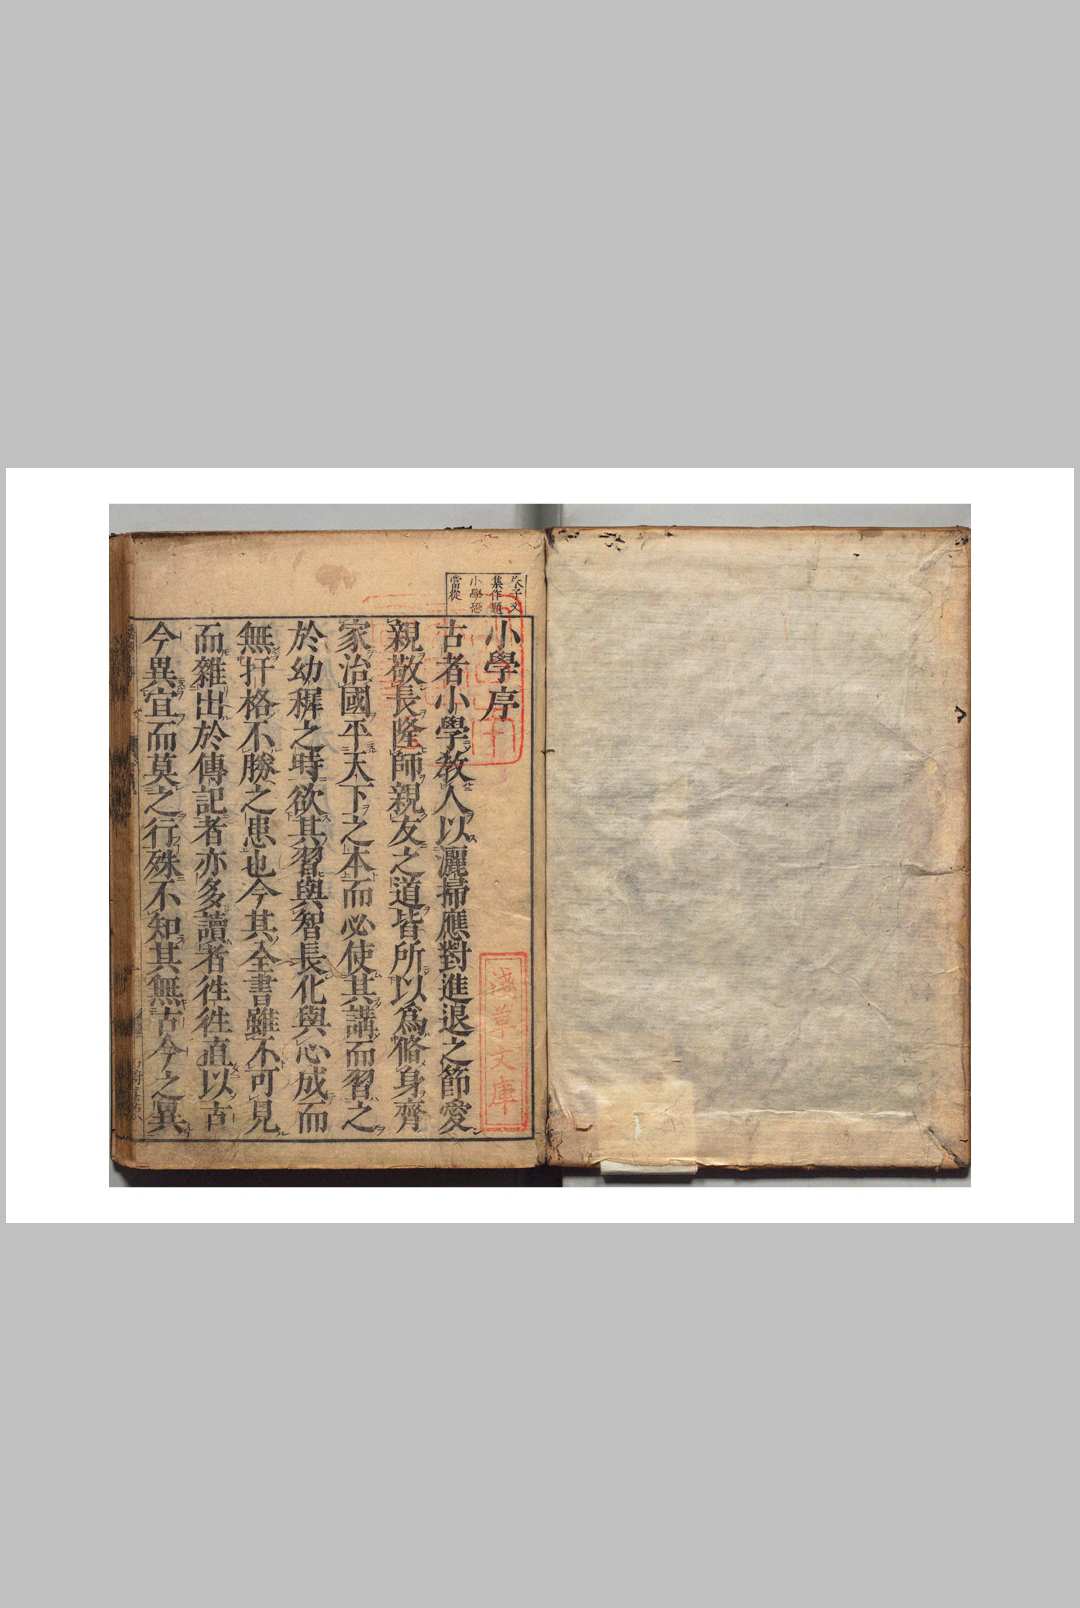 朱子文
集作題
小學恐
當從
小學序
古者小學教人以灑掃應對進退之節愛
親敬長隆師親友之道皆所以爲脩身齊
家治國平天下之本而必使其講而習之
於幼穉之時欲其習與智長化與心成而
無扞格不勝之患也今其全書雖不可見
而雜出於傳記者亦多讀者徃徃直以古
今異宜而莫之行殊不知其無古今之異
淺草文庫